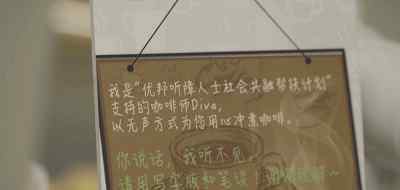 我是"优邦听障人士社会共融帮扶计划"
支持的咖啡师Diva,
以无声方式为您用心冲煮咖啡。
你说话,我听不见,
请用写字板和笑谈!谢谢理解~